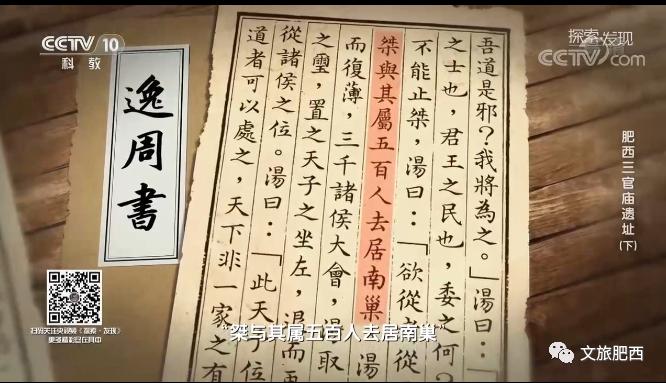 CCTV 10
科教
探索·发现
CCTV.com
逸周書
吾道是邪？我將為之。」湯曰：
之士也，君王之民也，委之何？
不能止桀，湯曰：「欲從
桀與其屬五百人去居南巢
而復薄，三千諸侯大會，湯取
之璽，置之天子之坐左，退而再
從諸侯之位。湯曰：「此天子位
道者可以處之，天下非一家之有
肥西三官庙遗址(下)
扫码关注央视频《探索·发现》
更多精彩尽在其中
“桀与其属五百人去居南巢”
文旅肥西